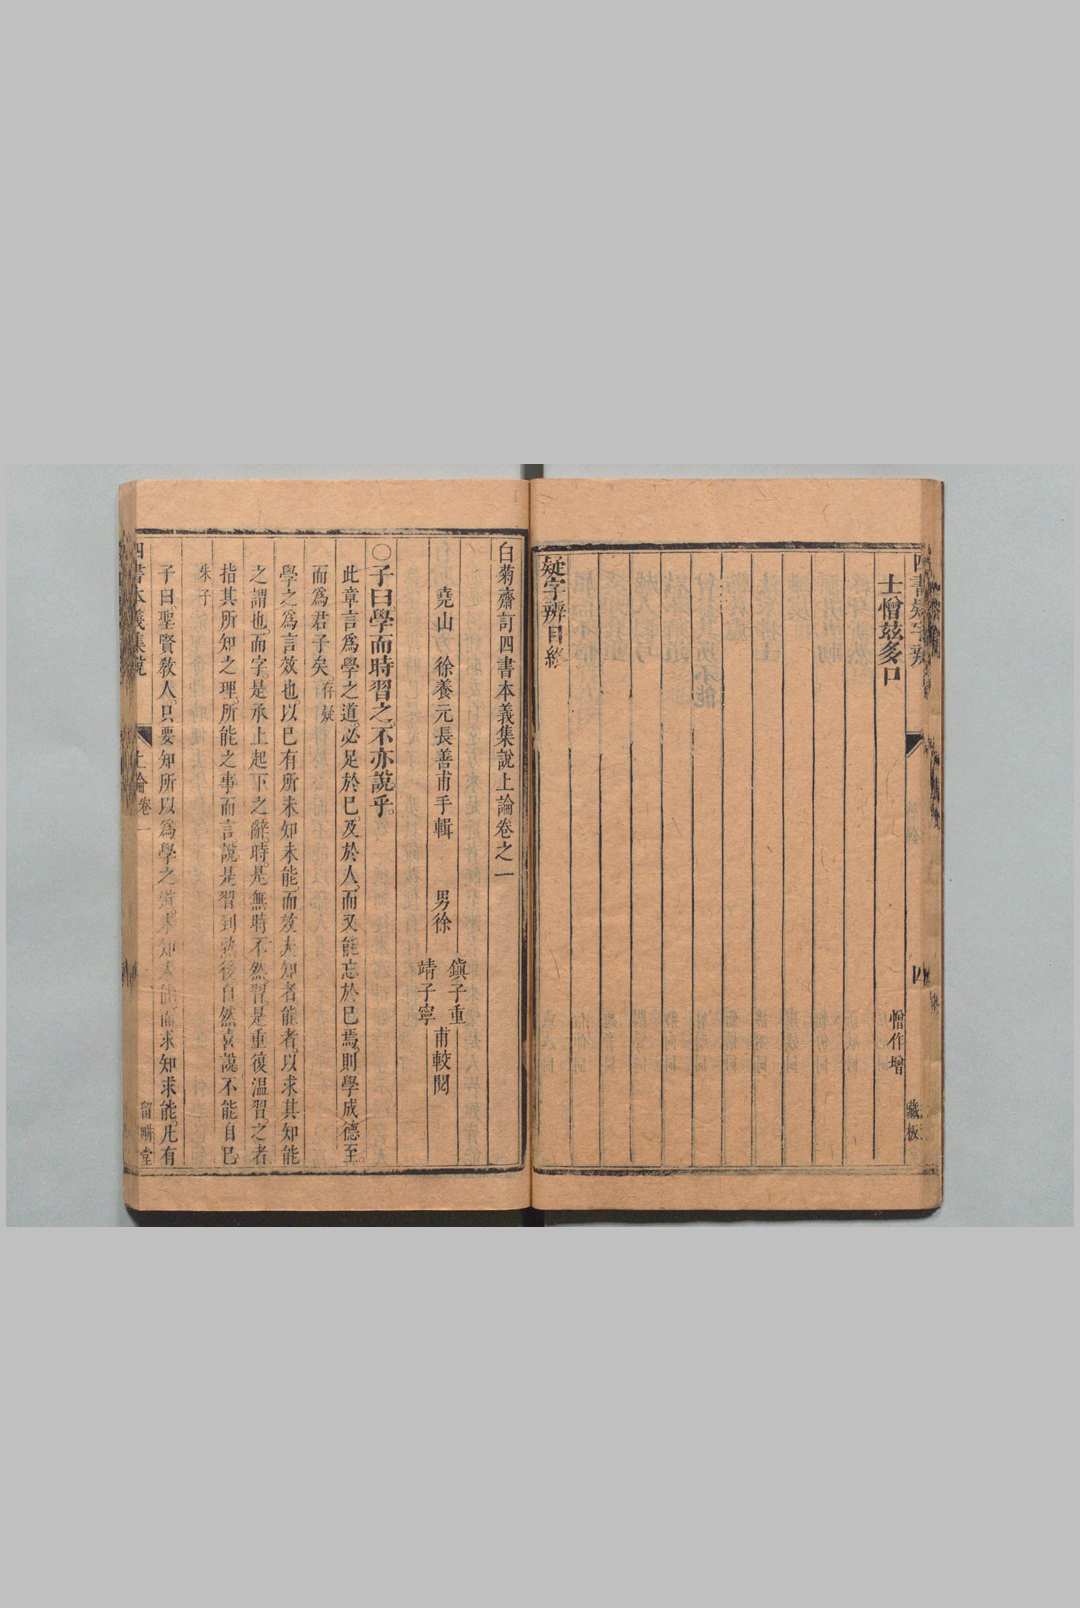 四書疑字辨
四
藏板
士憎茲多口 憎作增
疑字辨目終
白菊齋訂四書本義集說上論卷之一
堯山 徐養元長善甫手輯 男徐 鎮子重 靖子寧 甫較閱
○子曰學而時習之不亦說乎
此章言爲學之道必足於已及於人而又能忘於已焉則學成德至
而爲君子矣 存疑
學之爲言效也以已有所未知未能而效夫知者能者以求其知能
之謂也而字是承上起下之辭時是無時不然習是重復溫習之者
指其所知之理所能之事而言說是習到熟後自然喜說不能自已
朱子
子曰聖賢敎人只要知所以爲學之道未知未能而求知求能凡有
四書本義集說 上論卷一 留畊堂